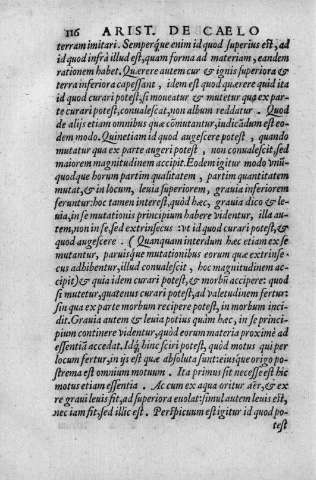 116 ARIST. DE CAELO
terram imitari. Semperq́ue enim id quod superius est, ad
id quod infrà illud est, quam forma ad materiam, eandem
rationem habet. Quærere autem cur & ignis superiora &
terra inferiora capessant, idem est quod quærere quid ita
id quod curari potest, si moueatur & mutetur qua ex par-
te curari potest, conualescat, non album reddatur. Quod
de alijs etiam omnibus quæ cõmutantur, indicãdum est eo
dem modo. Quinetiam id quod augescere potest, quando
mutatur qua ex parte augeri potest, non conualescit, sed
maiorem magnitudinem accipit. Eodem igitur modo vnũ-
quodque horum partim qualitatem, partim quantitatem
mutat, & in locum, leuia superiorem, grauia inferiorem
feruntur: hoc tamen interest, quòd hæc, grauia dico & le-
uia, in se mutationis principium habere videntur, illa au-
tem, non in se, sed extrinsecus: vt id quod curari potest, &
quod augescere. (Quanquam interdum hæc etiam ex se
mutantur, paruisq́ue mutationibus eorum quæ extrinse-
cus adhibentur, illud conualescit, hoc magnitudinem ac-
cipit) & quia idem curari potest, & morbũ accipere: quod
si mutetur, quatenus curari potest, ad valetudinem fertur:
sin qua ex parte morbum recipere potest, in morbum inci-
dit. Grauia autem & leuia potius quàm hæc, in se princi-
pium continere videntur, quòd eorum materia proximè ad
essentiã accedat. Idq́; hinc sciri potest, quòd motus qui per
locum fertur, in ijs est quæ absoluta sunt: eiusque origo po-
strema est omnium motuum. Ita primus sit necesse est hic
motus etiam essentia. Ac cum ex aqua oritur aër, & ex
re graui leuis fit, ad superiora euolat: simul autem leuis est,
nec iam fit, sed illic est. Perspicuum est igitur id quod po-
test